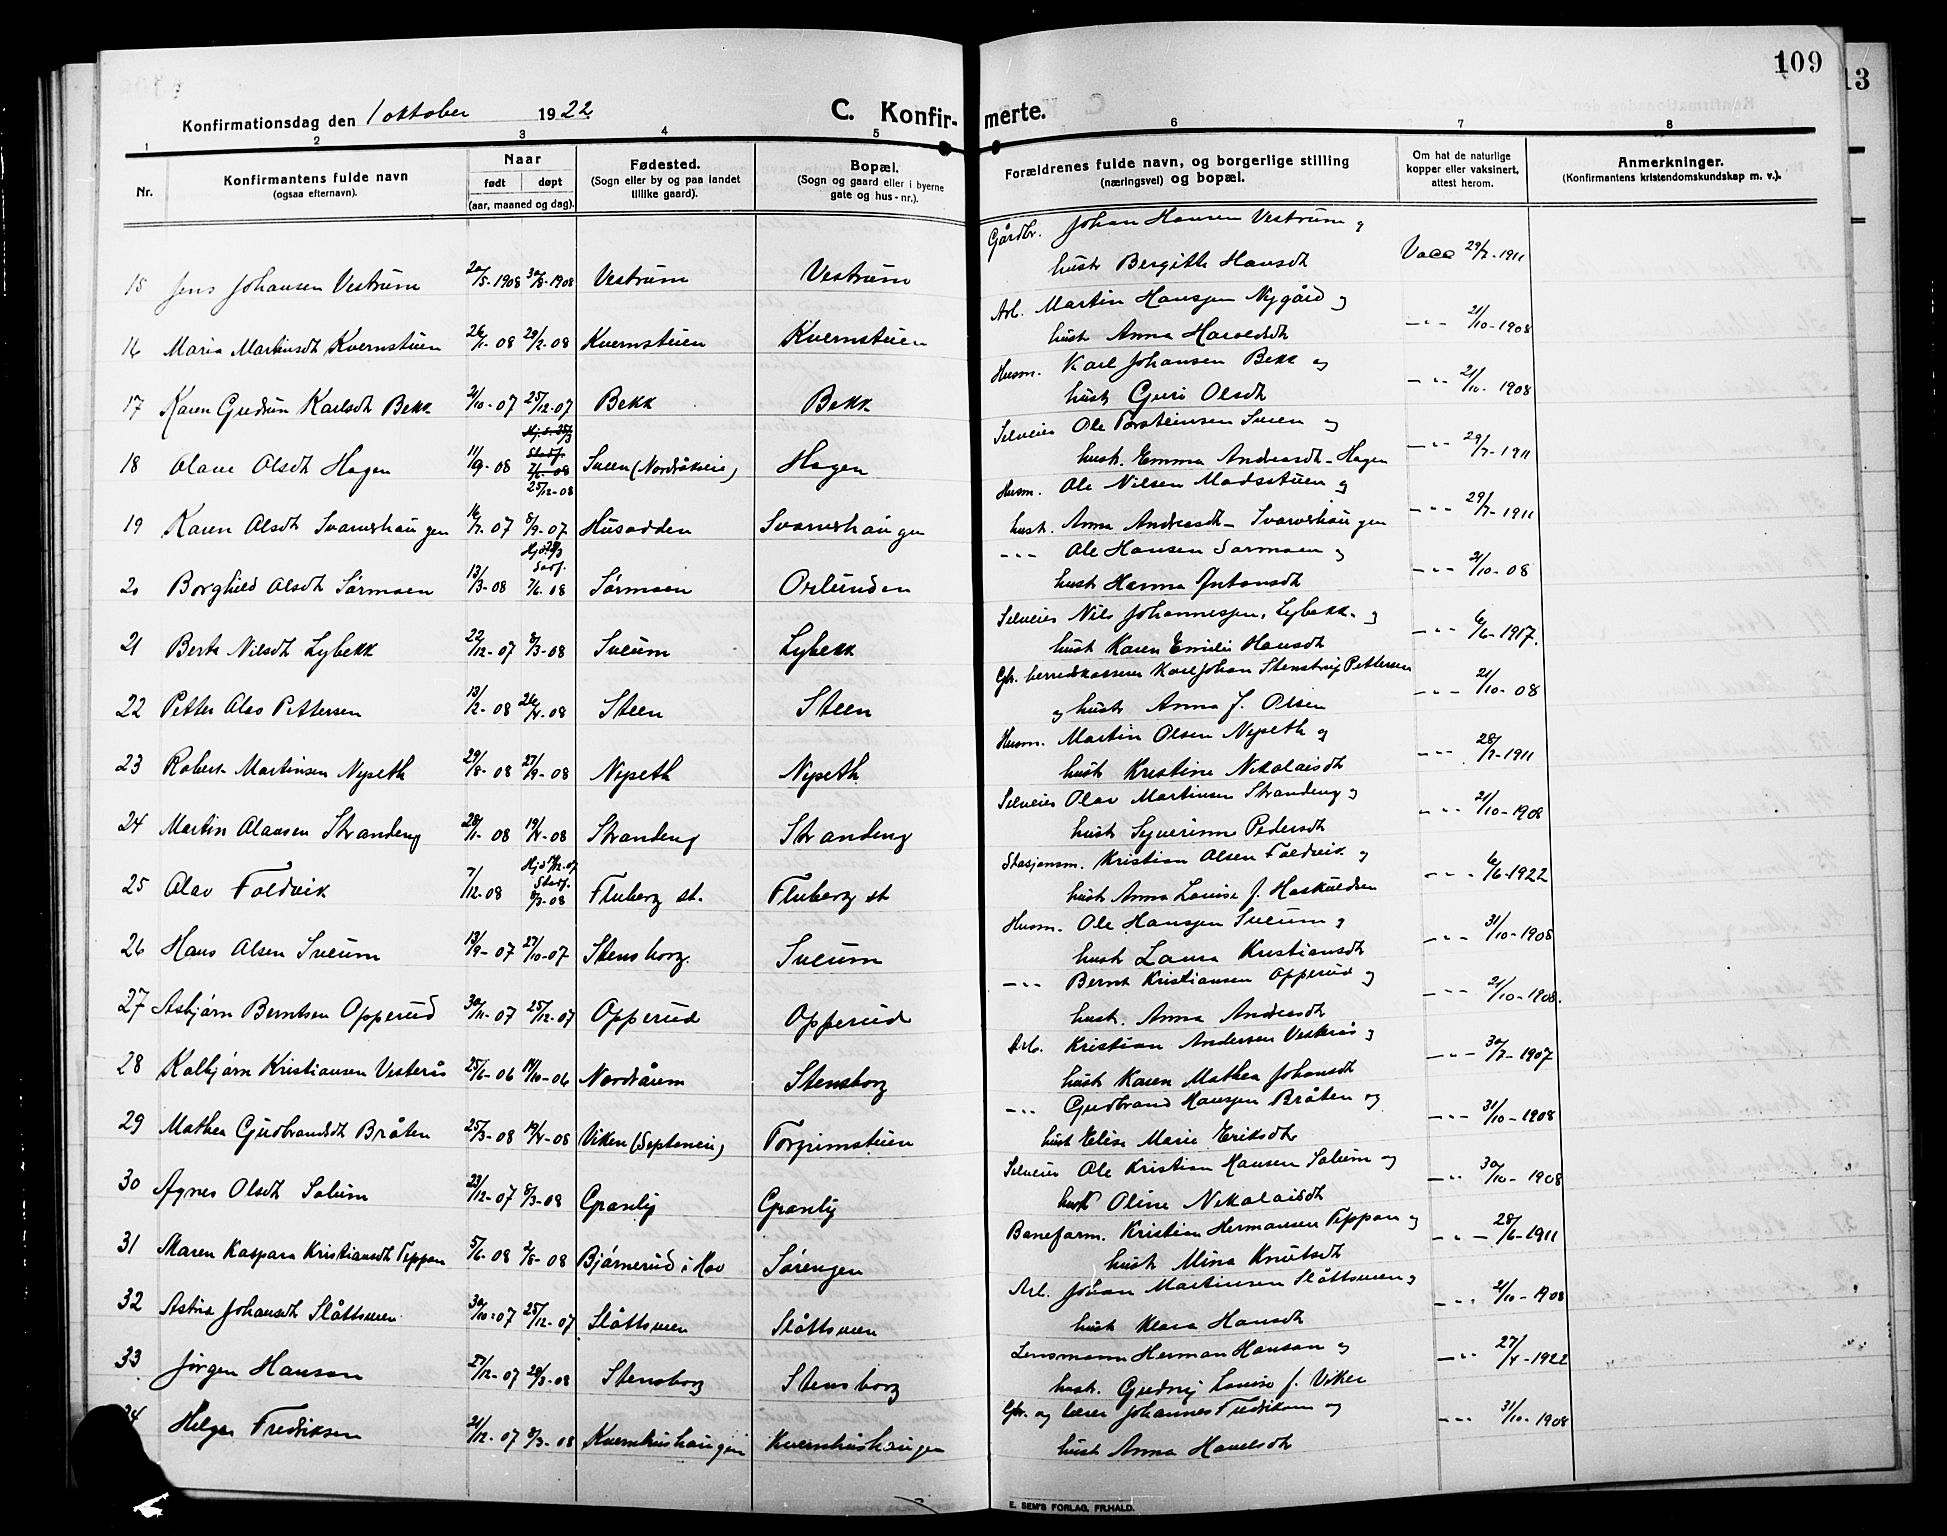 109
13
Konfirmationsdag den 1 oktober 1922 C. Konfirmerte.
1 2 3 4 5 6 7 8
Nr. Konfirmantens fulde navn (ogsaa efternavn). Naar født døpt (aar, maaned og dag). Fødested. (Sogn eller by og paa landet tillike gaard). Bopæl. (Sogn og gaard eller i byerne gate og hus-nr.). Forældrenes fulde navn, og borgerlige stilling (næringsvei) og bopæl. Om hat de naturlige kopper eller vaksinert, attest herom. Anmerkninger. (Konfirmantens kristendomskundskap m. v.).
Gårdbr. Johan Hansen Vestrum og
15 Jens Johansen Vestrum 20/5-1908 30/8-1908 Vestrum Vestrum hust Bergitte Hansdt Vacc 29/7-1911
Arb. Martin Hansen Nygård og
16 Maria Martinsdt Kvernstuen 26/1-08 29/2-08 Kvernstuen Kvernstuen hust Anna Haroldsdt -"- 21/10-1908
Husm. Karl Johansen Bekk og
17 Karen Gudrun Karlsdt Bekk 21/10-07 25/12-07 Bekk Bekk hust Guri Olsdt -"- 21/10-1908
Selveier Ole Torsteinsen Sveen og
18 Olave Olsdt Hagen 11/9-08 25/12-08 Sveen (Nordråkeie) Hagen hust. Emma Andreasdt-Hagen -"- 29/7-1911
Husm. Ole Nilsen Madsstuen og
19 Karen Olsdt Svarveshaugen 16/7-07 8/9-07 Husodden Svarveshaugen hust. Anna Andreasdt-Svarveshaugen -"- 29/7-1911
-"- Ole Hansen Sørmoen og
20 Borghild Olsdt Sørmoen 13/3-08 7/6-08 Sørmoen Orlunden hust Hanna Antonsdt -"- 21/10-08
Selveier Nils Johannessen, Lybekk og
21 Berte Nilsdt Lybekk 22/12-07 8/3-08 Sveum Lybekk hust Karen Emilie Hansdt -"- 6/6-1917.
Gbr. herredskasserer Karl Johan Stenstrup Pettersen
22 Petter Olav Pettersen 13/2-08 26/4-08 Steen Steen og hust Anna f. Olsen -"- 21/10-08
Husm. Martin Olsen Nyseth og
23 Robert Martinsen Nyseth 29/8-08 27/9-08 Nyseth Nyseth hust Kristine Nikolaisdt -"- 28/7-1911
Selveier Olav Martinsen Strandeng og
24 Martin Olausen Strandeng 28/1-08 19/4-08 Strandeng Strandeng hust Syverinne Pedersdt -"- 21/10-1908
Stasjonsm. Kristian Olsen Foldvik og
25 Olav Foldvik 7/12-08 Hjd 17/12-07 Stadf. 8/3-08 Fluberg st. Fluberg st hust Anna Louise f. Haskuldsen -"- 6/6-1922
Husm. Ole Hansen Sveum og
26 Hans Olsen Sveum 13/9-07 27/10-07 Stensborg. Sveum hust Laura Kristiansdt -"- 31/10-1908
-"- Bernt Kristiansen Opperud og
27 Asbjørn Berntsen Opperud 30/11-07 25/12-07 Opperud Opperud hust. Anna Andersdt -"- 21/10-1908.
Arb. Kristian Andersen Vesterås og
28 Kolbjørn Kristiansen Vesterås 25/6-06 14/10-06 Nordråum Stensborg hust Karen Mathea Johansdt -"- 30/7-1907
-"- Gudbrand Hansen Bråten og
29 Mathea Gudbrandsdt Bråten 25/3-08 19/4-08 Viken (Septoneie) Torgrimstuen hust Elise Marie Eriksdt -"- 31/10-1908
Selveier Ole Kristian Hansen Solum og
30 Agnes Olsdt Solum 23/12-07 8/3-08 Granly Granly hust Oline Nikolaisdt -"- 30/10-1908
Baneform. Kristian Hermansen Teppan og
31 Maren Kaspara Kristiansdt Teppan 5/6-08 2/8-08 Bjørnerud i Hov Sørengen hust Mina Knutsdt -"- 28/6-1911
Arb. Johan Martinsen Slåttsveen og
32 Astrid Johansdt Slåttsveen 30/10-07 25/12-07 Slåttsveen Slåttsveen hust Klara Hansdt -"- 21/10-1908
Lensmann Herman Hanson og
33 Jørgen Hanson 27/12-07 29/3-08 Stensborg Stensborg hust. Gudny Louise f. Viker -"- 27/4-1922
Gbr. og lærer Johannes Fredriksen og
34 Helge Fredriksen 21/12-07 8/3-08 Kvernhushaugen Kvernhushaugen hust Anna Hovelsdt -"- 31/10-1908
E. SEM'S FORLAG, FR.HALD.